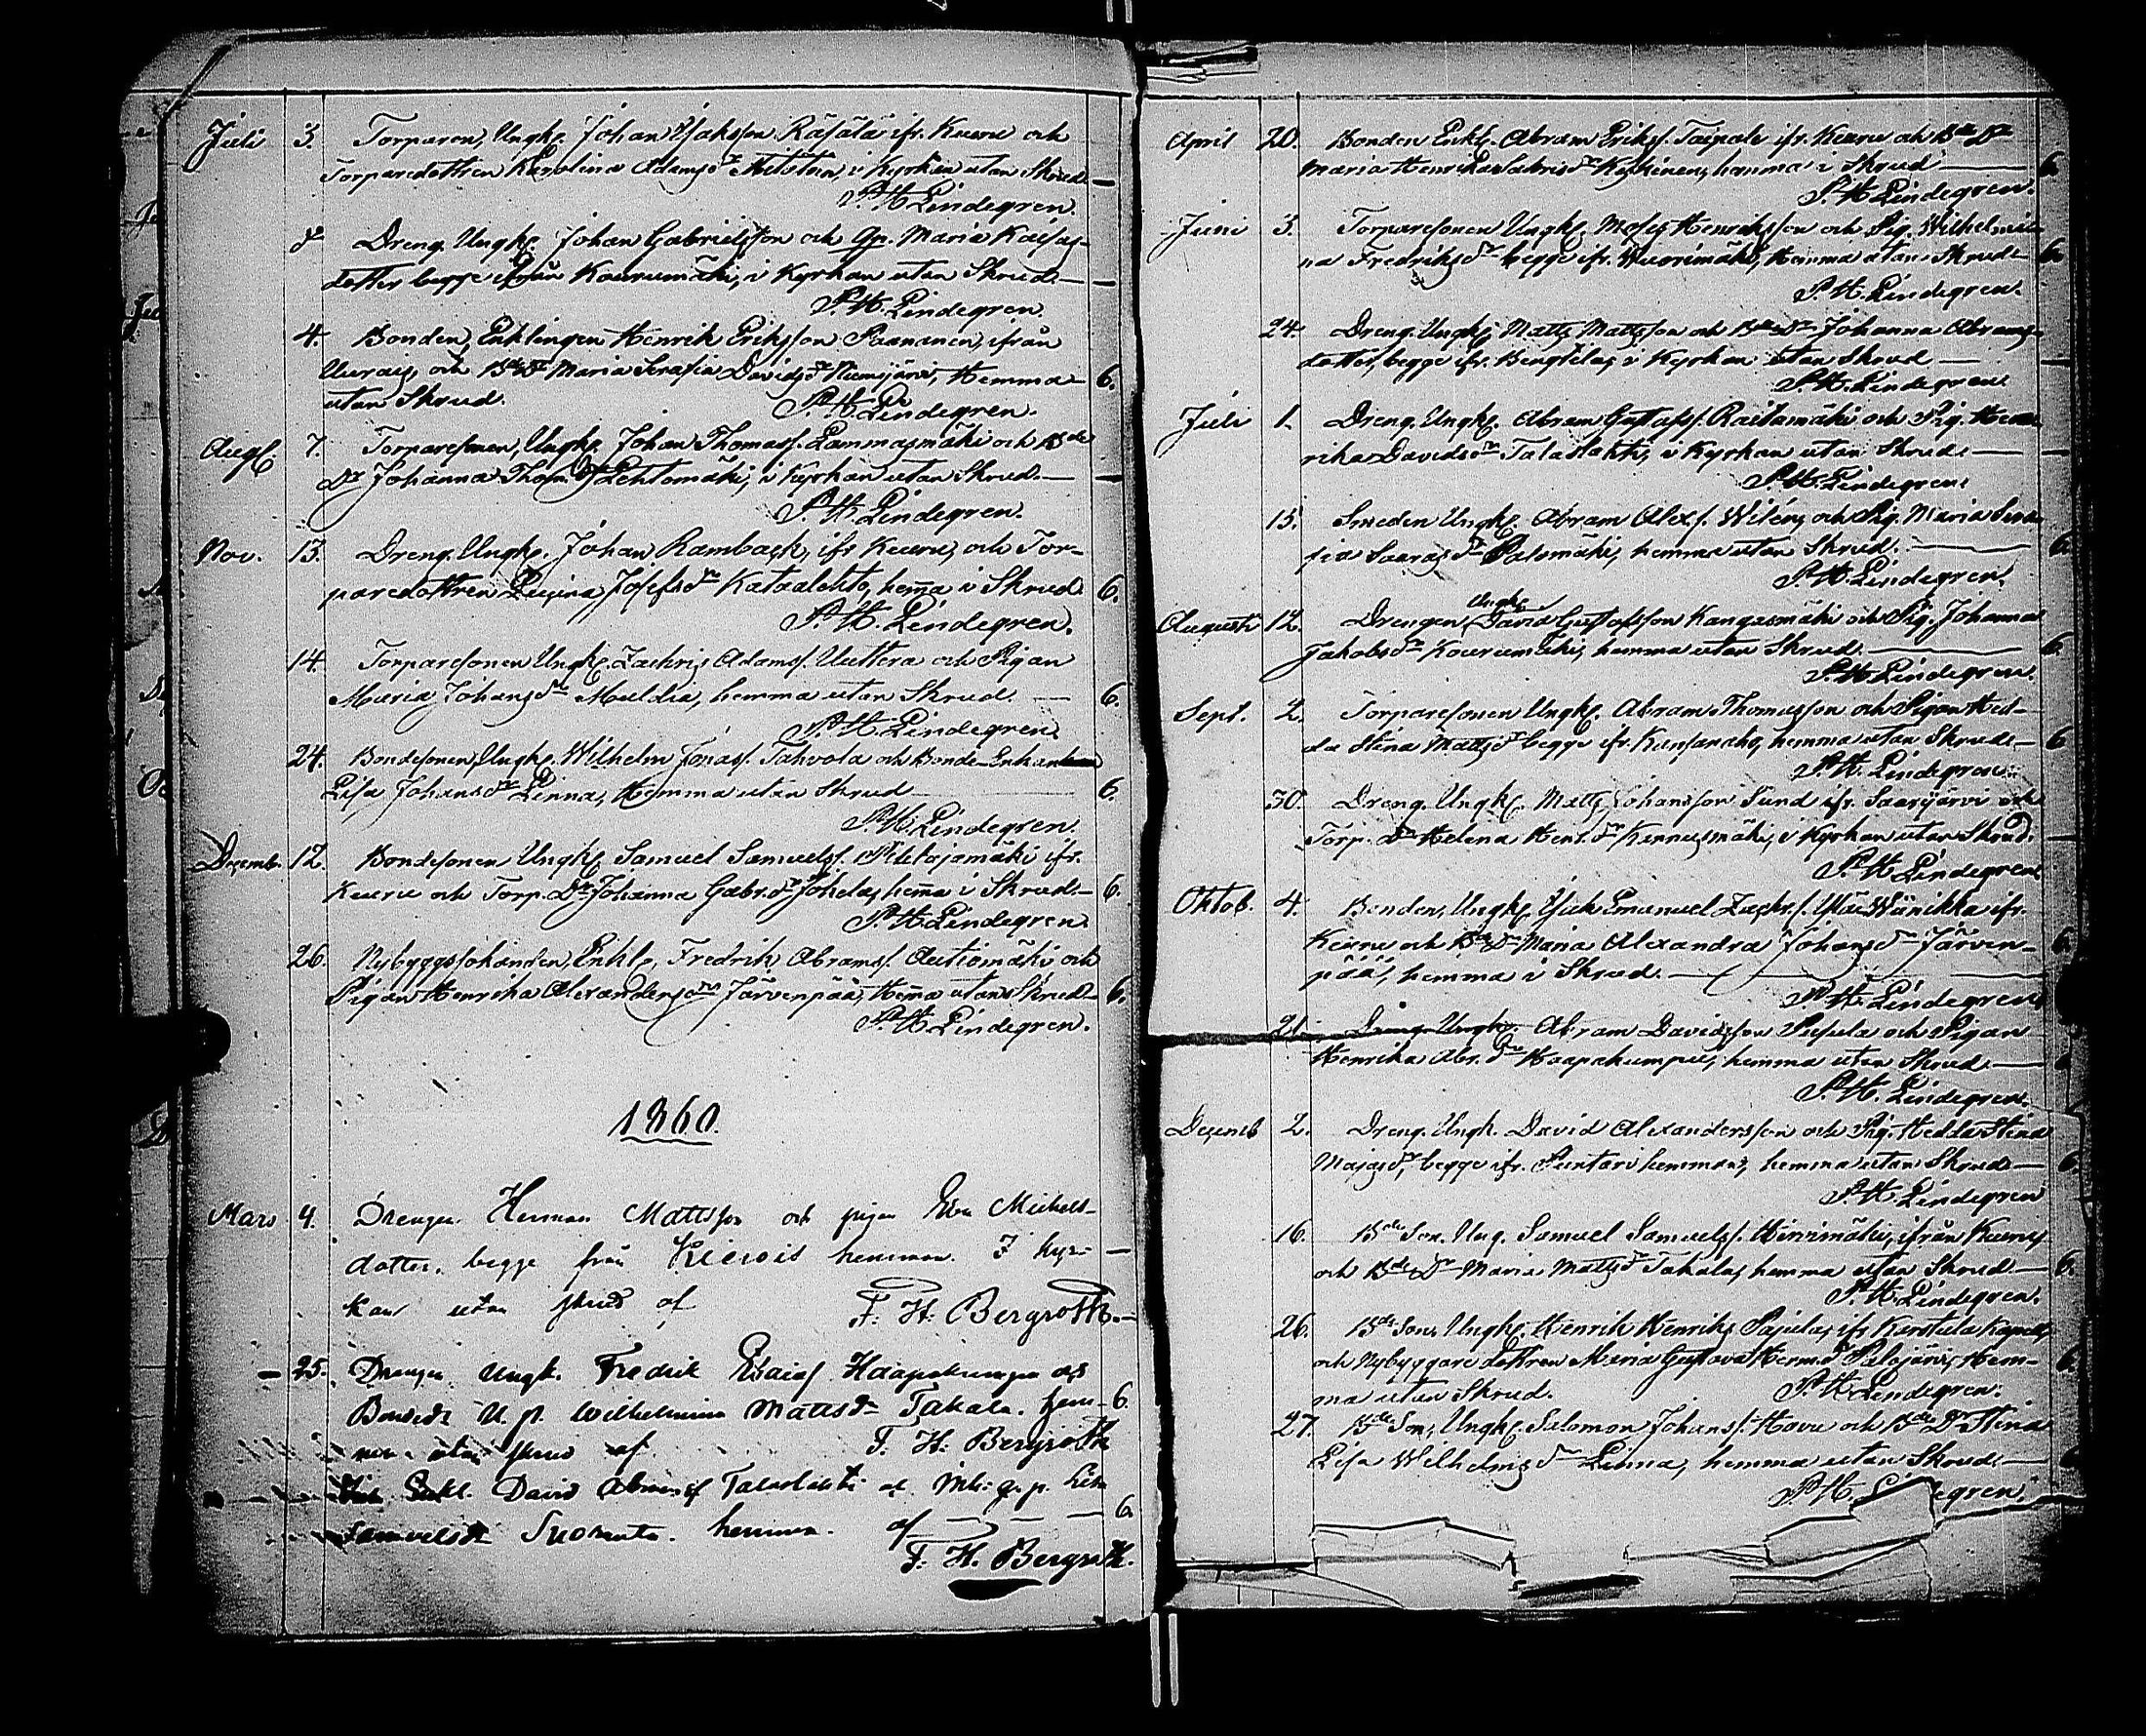 Juli 3. Torparen, Ungk. Johan Isaksson Räsälä ifr. Keuru och
Torparedottren Karolina Adamsdr i Kyrkan utan Skrud —
P. H. Lindegren.
d Dreng. Ungk. Johan Gabrielsson och Gp. Maria Kaisas-
dotter begge ifrån Kourumäki, i Kyrkan utan Skrud. —
P. H. Lindegren.
4. Bonden, Enklingen Henrik Eriksson Paananen, ifrån
Uurais, och Bde Dr Maria Serafia Davidsdr Niemjärvi, Hemma 6.
utan Skrud. P. H. Lindegren.
Aug. 7. Torparesonen, Ungk. Johan Thomass. Lammasmäki och Bde
Dr Johanna Thom. dr Lehtomäki, i Kyrkan utan Skrud. —
P. H. Lindegren.
Nov. 13. Dreng. Ungk. Johan Rambach, ifr Keuru, och Tor-
paredottren Regina Josefsdr Kataalehto, hema i Skrud 6.
P. H. Lindegren.
14. Torparesonen Ungk. Zachris Adamss. Uuttera och Pigan
Maria Johansdr Muldia, hemma utan Skrud. 6.
P. H. Lindegren.
24. Bondesonen, Ungk. Wilhelm Jonass. Tahvola och Bonde-Enkan
Lisa Johansdr Linna, Hemma utan Skrud 6.
P. H. Lindegren.
Decemb. 12. Bondesonen Ungk. Samuel Samuelss. ifr.
Keuru och Torp. Dr Johanna Gabr.dr Jokela, hema i Skrud. 6.
P. H. Lindegren.
26. Nybyggesbonden, Enkl. Fredrik Abramss. Autiomäki och
Pigan Henrika Alexandersdr Järvenpää, Hema utan Skrud 6.
P. H. Lindegren.
1860.
Mars 4. Drengen Herman Mattsson och pigan Eva Michels-
dotter, begge från hemman. I kyr- —
kan utan skrud af F. H. Bergroth. —
— 25. Drengen Ungk. Fredrik Esaiaf och
Wilhelmina Mattsdr Takala. hem- 6
utan skrud af F. H. Bergroth
Enkl. David Talaslahti
Samuelsdr Suoranta. hemma. af — — — 6
F. H. Bergroth.
April 20. Bonden Enkl. Abram Erikss. Taipale ifr. Keuru och Bde Dr
Maria Henrika hemma i Skrud — 6.
P. H. Lindegren.
Juni 3. Torparesonen Ungk. Moses Henriksson och Pig. Wilhelmi-
na Fredriksdr begge ifr. Wuorimäki, Hemma utan Skrud 6.
P. H. Lindegren.
24. Dreng. Ungk. Matts Mattsson och Bde Dr Johanna Abrams-
dotter, begge ifr. Bengtila, i Kyrkan utan Skrud —
P. H. Lindegren
Juli 1. Dreng. Ungk. Abram Gustafss. Raitamäki och Pig. Hen-
rika Davidsdr Talaslahti, i Kyrkan utan Skrud —
P. H. Lindegren.
15. Smeden Ungk. Abram Alexs. Wilén, och Pig. Maria Sera-
fia Saarasdr Salomäki, hemma utan Skrud. — 6.
P. H. Lindegren.
Augusti 12. Drengen Ungk. David Gustafsson Kangasmäki och Pig. Johanna
Jakobsdr Kourumäki, hemma utan Skrud. — 6
P. H. Lindegren.
Sept. 2. Torparesonen Ungk. Abram Thomasson och Pigan Hed-
da Stina Mattsdr begge ifr. Kansanaho, hemma utan Skrud 6
P. H. Lindegren.
30. Dreng. Ungk. Matts Johansson Sund ifr. Saarijärvi och
Torp. Dr Helena Henr. dr Kennusmäki, i Kyrkan utan Skrud. —
P. H. Lindegren
Oktob. 4. Bonden, Ungk. Isak Emanuel Zachr.s. Wänikka ifr.
Keuru och Bde Dr Maria Alexandra Johansdr Järven- 6.
pää, hemma i Skrud. —
P. H. Lindegren
21. Dreng. Ungk. Abram Davidsson och Pigan
Henrika Abr. dr Haapakumpu, hemma utan Skrud. —
P. H. Lindegren.
Decemb 2. Dreng. Ungk. David Alexandersson och Pig. Hedda Stina
Majasdr, begge ifr. Puntari hemman, hemma utan Skrud — 6.
P. H. Lindegren
16. Bde Son. Ung. Samuel Samuelss. Hirvimäki, ifrån Keuru
och Bde Dr Maria Mattsdr Takala, hemma utan Skrud — 6.
P. H. Lindegren.
26. Bde Son. Ungk. Henrik Henriks. Pajula, ifr Karstula Kapell
och Nybyggare dottren Maria Gustava Herm.dr Palojärvi, Hem- 6
ma utan Skrud. P. H. Lindegren.
27. Bde Son, Ungk. Salomon Johanss. Hovi och Bde Dr Stina
Lisa Wilhelmsdr Linna, hemma utan Skrud. —
P. H. egren.